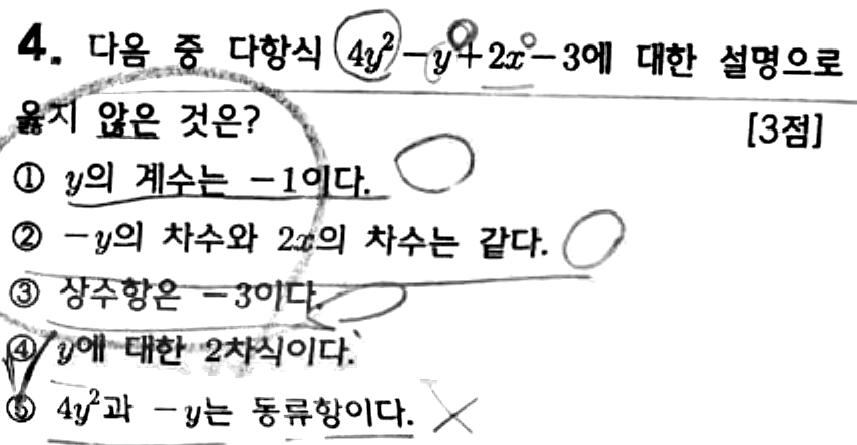 4. 다음 중 다항식 4y²-y+2x-3에 대한 설명으로
옳지 않은 것은? [3점]
① y의 계수는 -1이다.
② -y의 차수와 2x의 차수는 같다.
③ 상수항은 -3이다.
④ y에 대한 2차식이다.
⑤ 4y²과 -y는 동류항이다.